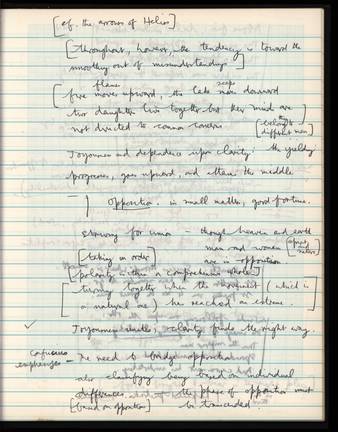 [cf. the arrows of Helios]
[throughout, however, the tendency is toward the
smoothing out of misunderstandings]
flame seeps
[fire moves upward, the lake moves downward
two daughters live together but their minds are
not directed to common concerns [belong to
different men]
Joyousness and dependence upon clarity: the yielding
progresses, goes upward, and attains the middle
Opposition. in small matters, good fortune.
striving for union – though heaven and earth
man and woman
[taking in order] are in opposition
[polarity within a comprehensive whole]
[turning together when the movement (which is
a natural one) has reached an extreme.]
✓ Joyousness clarity finds the right way.
Confucius
emphasizes – the need to bridge opposition
also clarifying being based on individual
differences. the phase of opposition must
[based on opposition] be transcended.